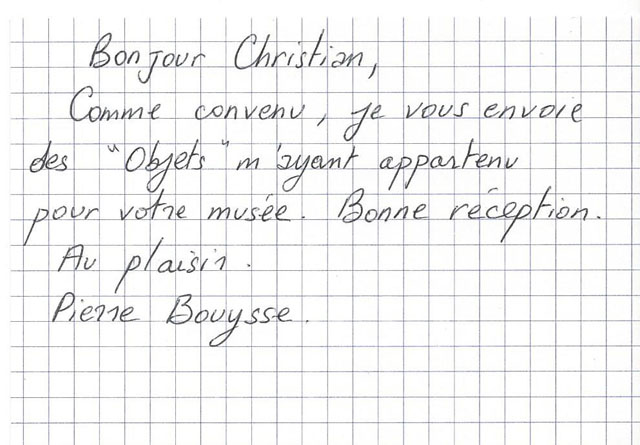 Bonjour Christian,
Comme convenu, je vous envoie
des "Objets" m'ayant appartenu
pour votre musée. Bonne réception.
Au plaisir.
Pierre Bouysse.